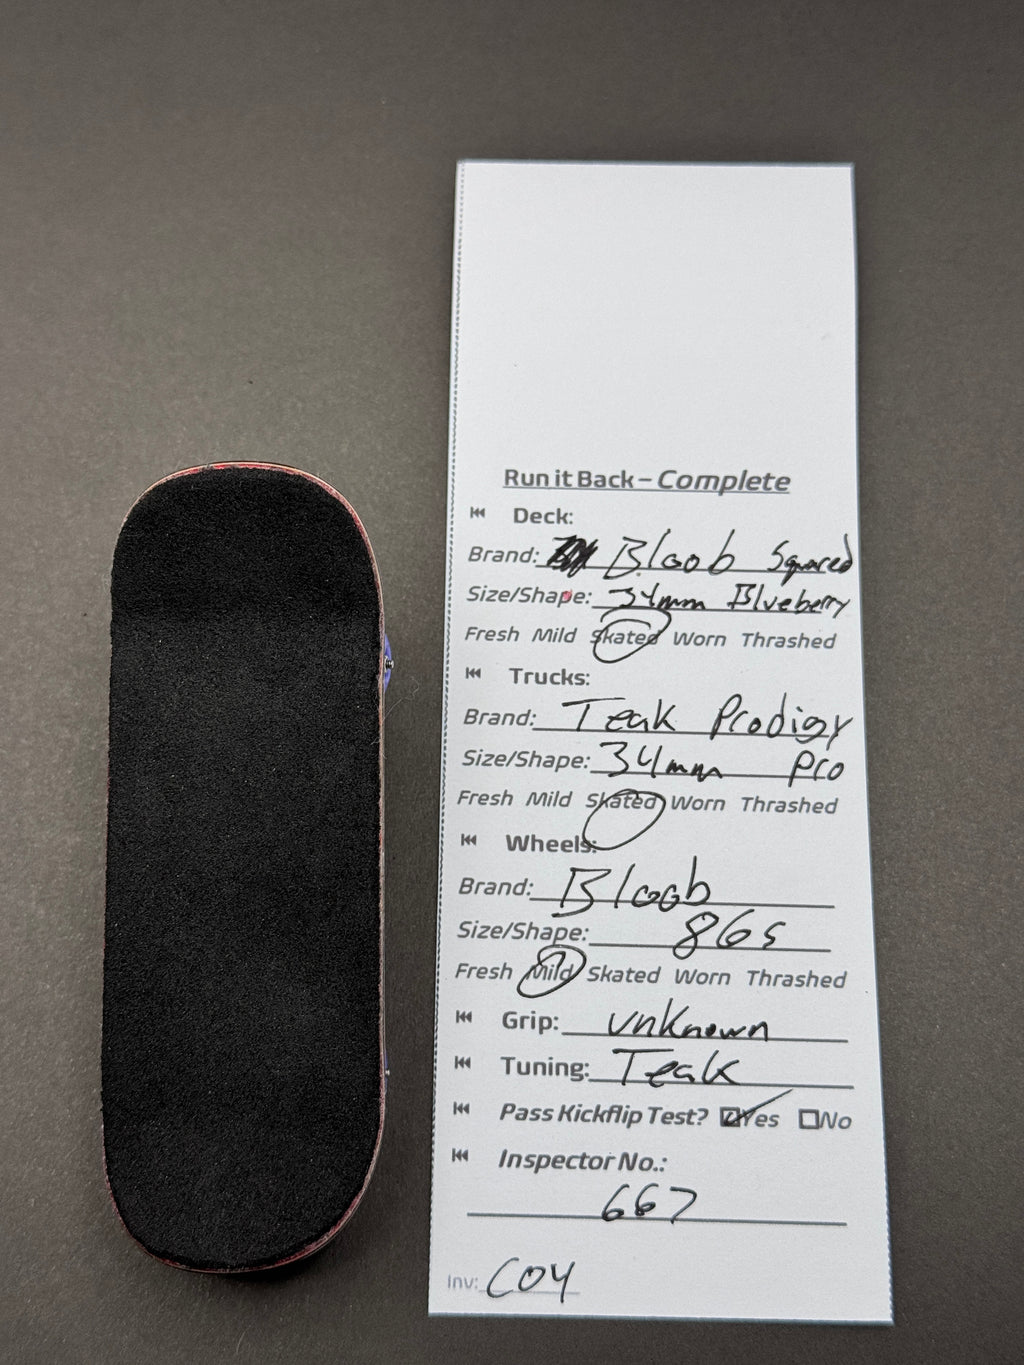 Run it Back – Complete
Deck:
Brand: Bloob Squared
Size/Shape: 34mm Blueberry
Fresh Mild Skated Worn Thrashed
Trucks:
Brand: Teak Prodigy
Size/Shape: 34mm Pro
Fresh Mild Skated Worn Thrashed
Wheels:
Brand: Bloob
Size/Shape: 86s
Fresh Mild Skated Worn Thrashed
Grip: unknown
Tuning: Teak
Pass Kickflip Test? Yes No
Inspector No.:
667
Inv: C04